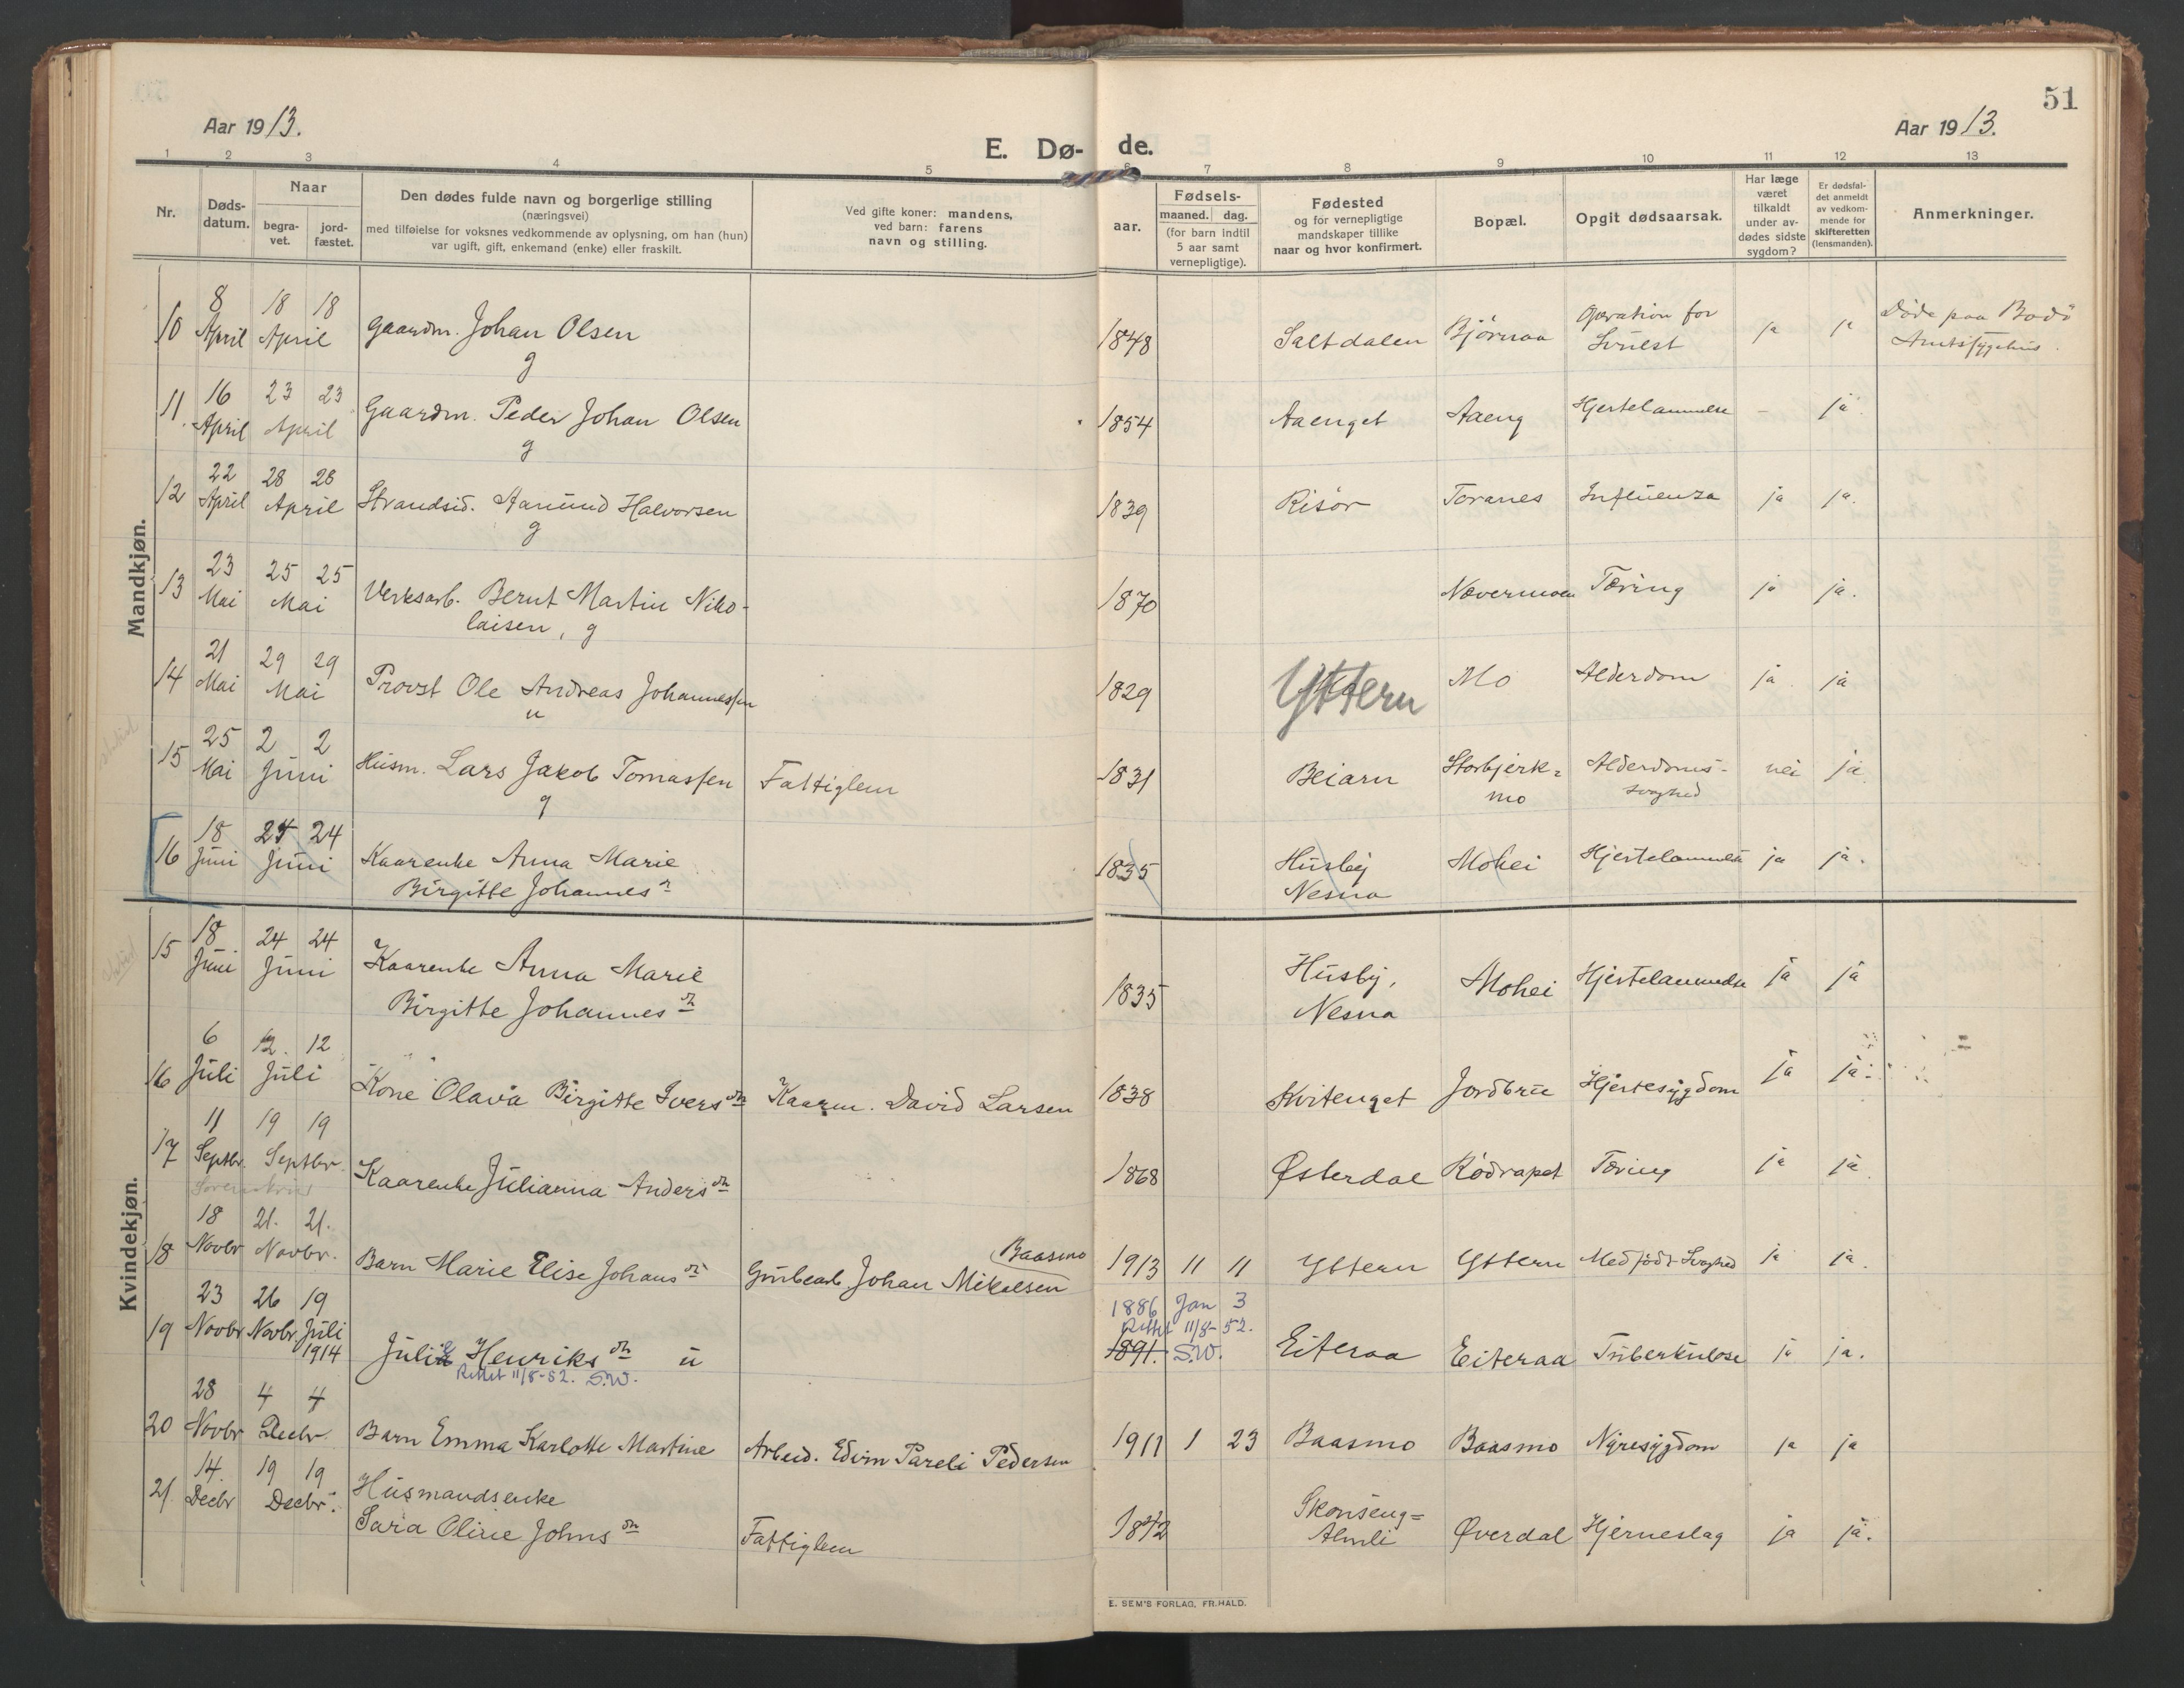 51
Aar 1913.
Aar 1913.
E. Dø- de.
1 2 3 4 5 6 7 8 9 10 11 12 13
Nr.
Døds-
datum.
Naar
begra-
vet.
jord-
fæstet.
Den dødes fulde navn og borgerlige stilling
(næringsvei)
med tilføielse for voksnes vedkommende av oplysning, om han (hun)
var ugift, gift, enkemand (enke) eller fraskilt.
Ved gifte koner: mandens,
ved barn: farens
navn og stilling.
Fødsels-
aar.
maaned. dag.
(for barn indtil
5 aar samt
vernepligtige).
Fødested
og for vernepligtige
mandskaper tillike
naar og hvor konfirmert.
Bopæl.
Opgit dødsaarsak.
Har læge
været
tilkaldt
under av-
dødes sidste
sygdom?
Er dødsfal-
det anmeldt
av vedkom-
mende for
skifteretten
(lensmanden).
Anmerkninger.
Mandkjøn.
10 8 April 18 18 April Gaardm. Johan Olsen
g
1848 Saltdalen Bjørnaa Operation for ja ja Døde paa Bodö
Amtssygehus.
11. 16 April 23 23 April Gaardm. Peder Johan Olsen
g
1854 Aaenget Aaeng Hjertelammelse - ja
12 22 April 28 28 April Strandsid. Aamund Halvorsen
g
1839 Risör Toranes Influenza ja ja.
13 23 Mai 25 25 Mai Verksarb. Bernt Martin Niko-
laisen, g
1870 Nævermoen Tæring ja ja.
14 21 Mai 29 29 Mai Provst Ole Andreas Johannessen
u
1829 Yttern Mo Alderdom ja ja
15 25 Mai 2 2 Juni Husm. Lars Jakob Tomassen Fattiglem
g
1831 Beiarn Storbjerk=
mo
Alderdoms-
svaghed
nei ja
16 18 Juni 24 24 Juni Kaarenke Anna Marie
Birgitte Johannesdr
1835 Husby
Nesna
Mohei Hjertelammelse ja ja.
Kvindekjøn.
15 18 Juni 24 24 Juni Kaarenke Anna Marie
Birgitte Johannesdr
1835 Husby,
Nesna
Mohei Hjertelammelse ja ja
16 6 Juli 12. 12 Juli Kone Olava Birgitte Iversdr Kaarm. David Larsen
1838 Hvitenget Jordbru Hjertesygdom ja ja.
17 11 Septbr. 19 19 Septbr. Kaarenke Julianna Andersdr
1868 Østerdal Rödrapet Tæring ja ja
18 18 Novbr 21. 21. Novbr. Barn Marie Elise Johansdr Grubearb. Johan Mikalsen
Baasmo
1913 11 11 Yttern Yttern Medfödt Svaghed ja ja.
19 23 Novbr 26 Novbr. 19 Juli
1914
Julie Henriksdr u
Rettet 11/8-52. S.W.
1886 Jan 3
Rettet 11/8-52.
1891. S.W.
Eiteraa Eiteraa Tuberkulose ja ja.
20 28 Novbr 4 4 Decbr. Barn Emma Karlotte Martine Arbeid. Edvin Pareli Pedersen
1911 1 23 Baasmo Baasmo Nyresygdom ja ja
21. 14. Decbr 19 19 Decbr. Husmandsenke
Sara Oline Johnsdr Fattiglem
1842 Skonseng=
Almli
Øverdal Hjerneslag ja ja.
E. SEM'S FORLAG, FR.HALD.